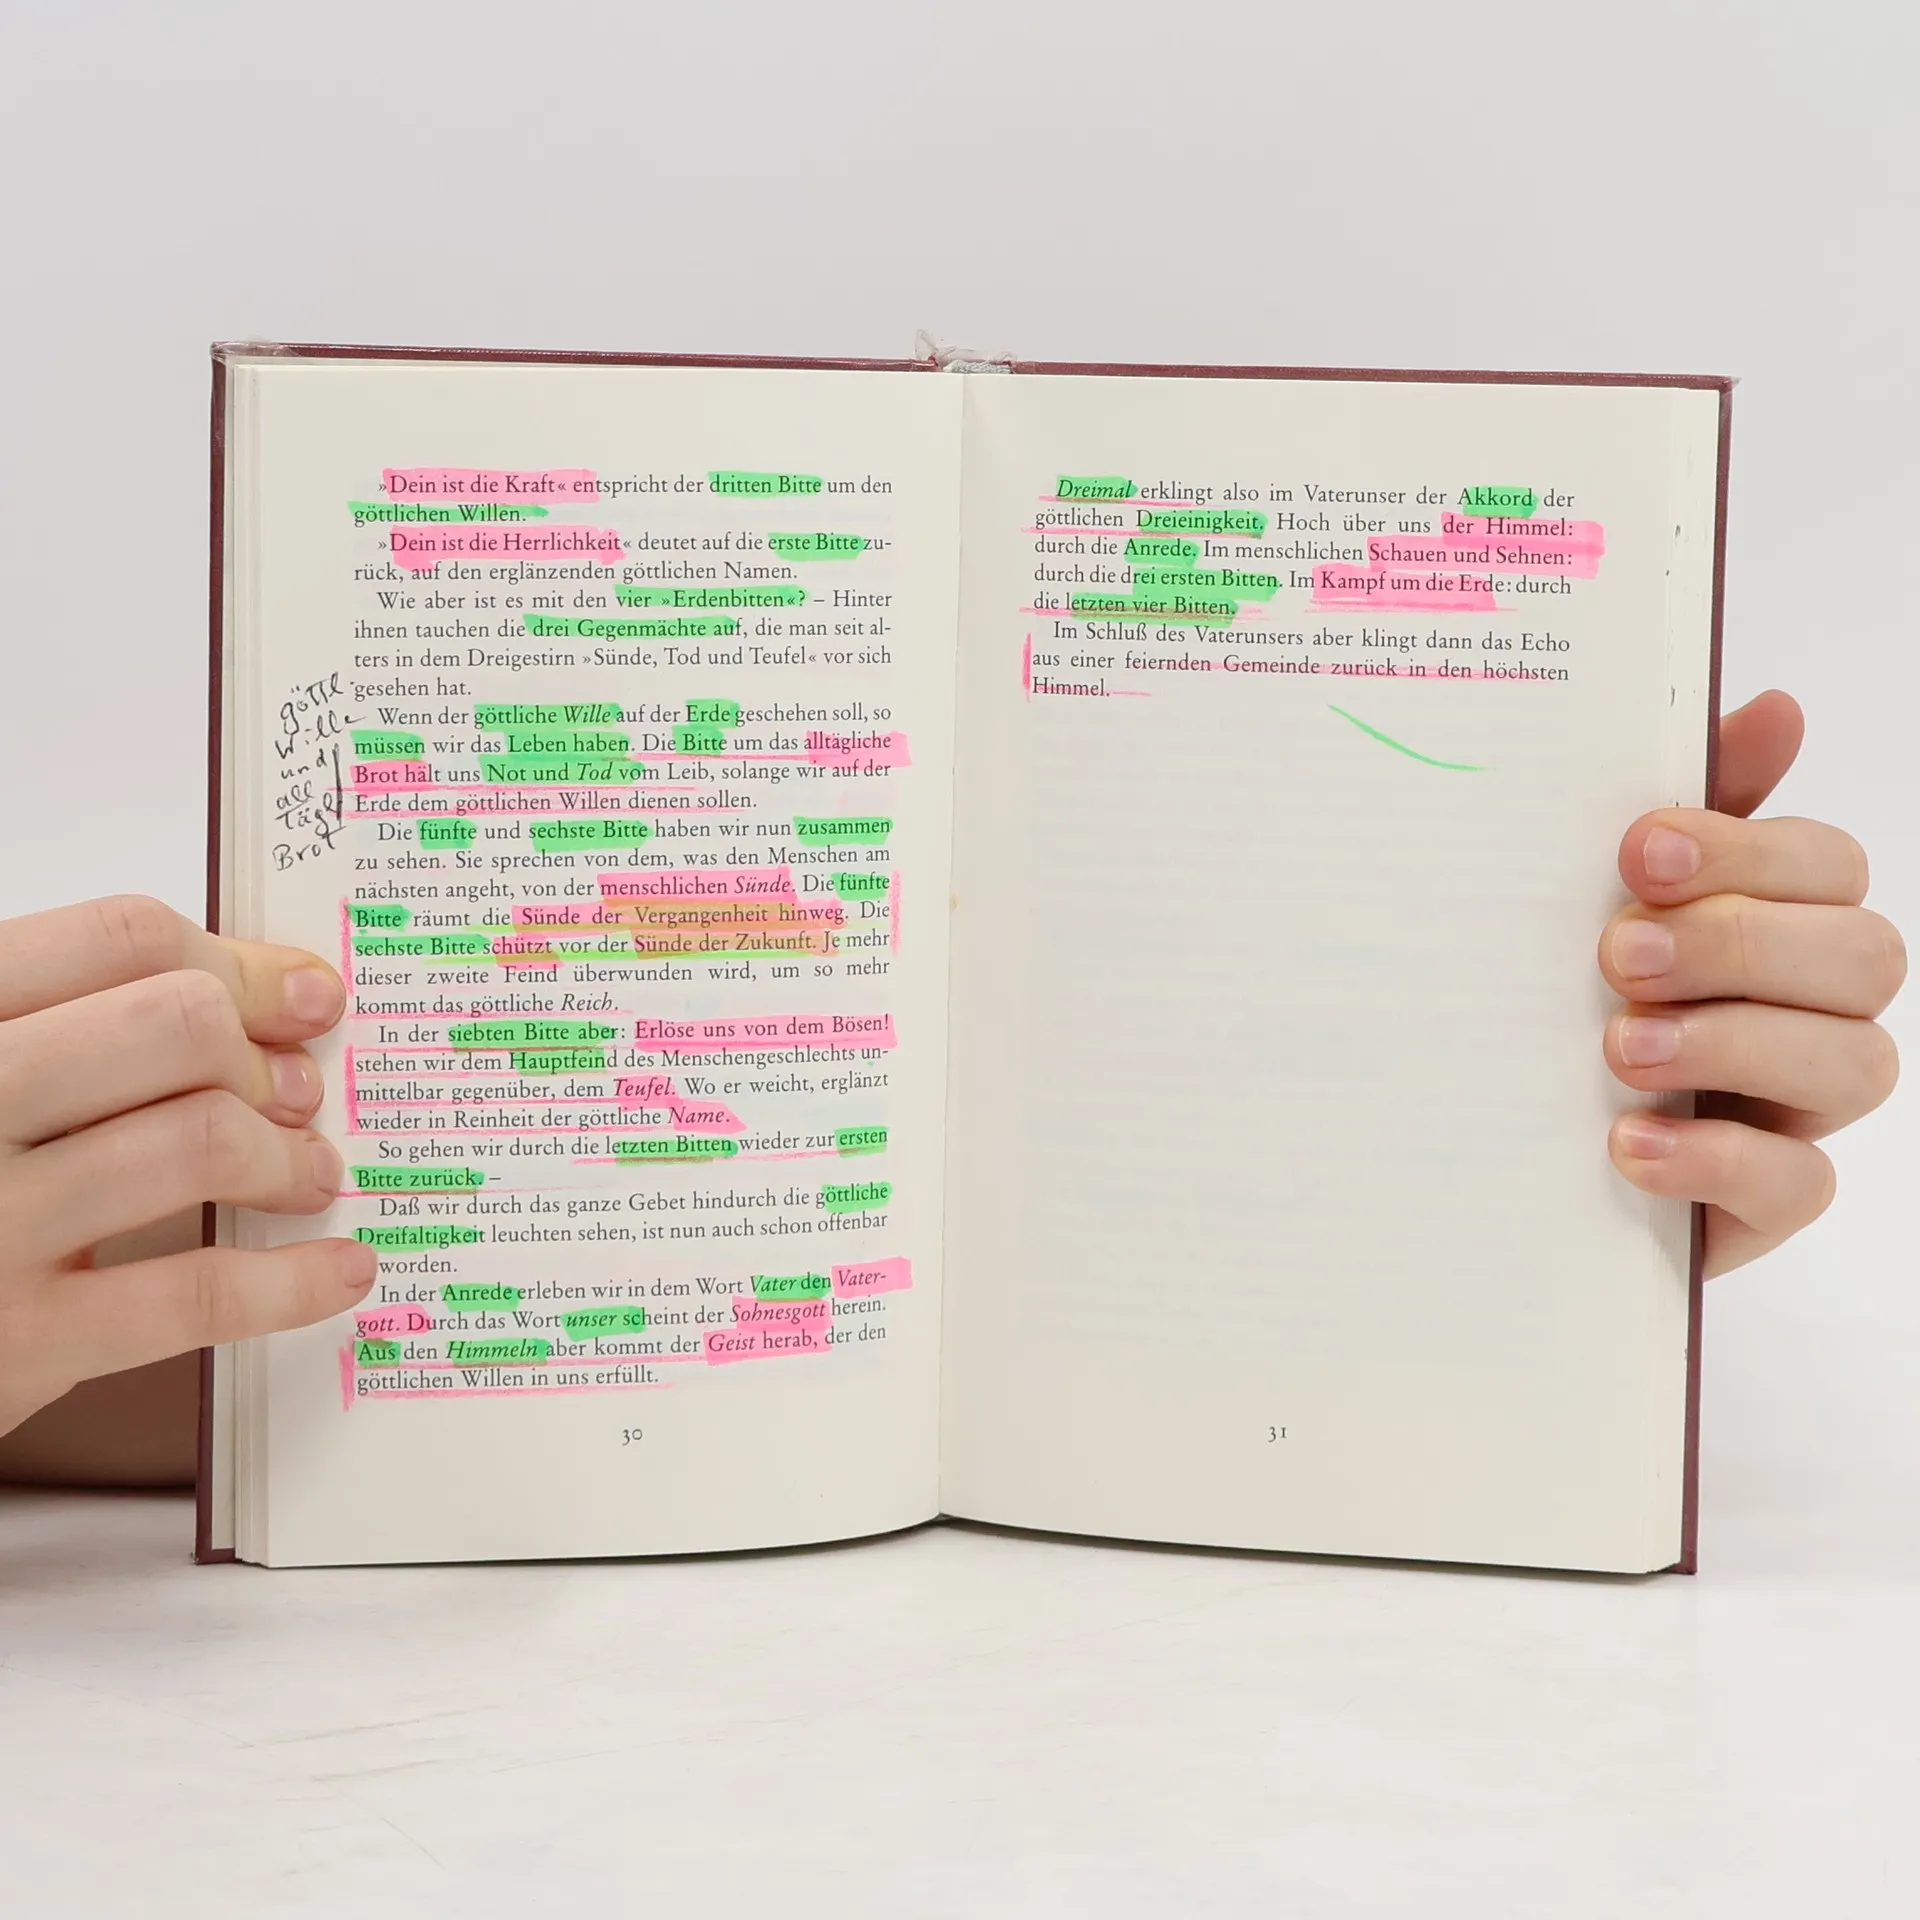 »Dein ist die Kraft« entspricht der dritten Bitte um den
göttlichen Willen.
»Dein ist die Herrlichkeit« deutet auf die erste Bitte zu-
rück, auf den erglänzenden göttlichen Namen.
Wie aber ist es mit den vier »Erdenbitten«? – Hinter
ihnen tauchen die drei Gegenmächte auf, die man seit al-
ters in dem Dreigestirn »Sünde, Tod und Teufel« vor sich
gesehen hat.
Wenn der göttliche Wille auf der Erde geschehen soll, so
müssen wir das Leben haben. Die Bitte um das alltägliche
Brot hält uns Not und Tod vom Leib, solange wir auf der
Erde dem göttlichen Willen dienen sollen.
Die fünfte und sechste Bitte haben wir nun zusammen
zu sehen. Sie sprechen von dem, was den Menschen am
nächsten angeht, von der menschlichen Sünde. Die fünfte
Bitte räumt die Sünde der Vergangenheit hinweg. Die
sechste Bitte schützt vor der Sünde der Zukunft. Je mehr
dieser zweite Feind überwunden wird, um so mehr
kommt das göttliche Reich.
In der siebten Bitte aber: Erlöse uns von dem Bösen!
stehen wir dem Hauptfeind des Menschengeschlechts un-
mittelbar gegenüber, dem Teufel. Wo er weicht, erglänzt
wieder in Reinheit der göttliche Name.
So gehen wir durch die letzten Bitten wieder zur ersten
Bitte zurück. –
Daß wir durch das ganze Gebet hindurch die göttliche
Dreifaltigkeit leuchten sehen, ist nun auch schon offenbar
worden.
In der Anrede erleben wir in dem Wort Vater den Vater-
gott. Durch das Wort unser scheint der Sohnesgott herein.
Aus den Himmeln aber kommt der Geist herab, der den
göttlichen Willen in uns erfüllt.
30
göttl.
Wille
und
all
tägl
Brot
Dreimal erklingt also im Vaterunser der Akkord der
göttlichen Dreieinigkeit. Hoch über uns der Himmel:
durch die Anrede. Im menschlichen Schauen und Sehnen:
durch die drei ersten Bitten. Im Kampf um die Erde: durch
die letzten vier Bitten.
Im Schluß des Vaterunsers aber klingt dann das Echo
aus einer feiernden Gemeinde zurück in den höchsten
Himmel.
31